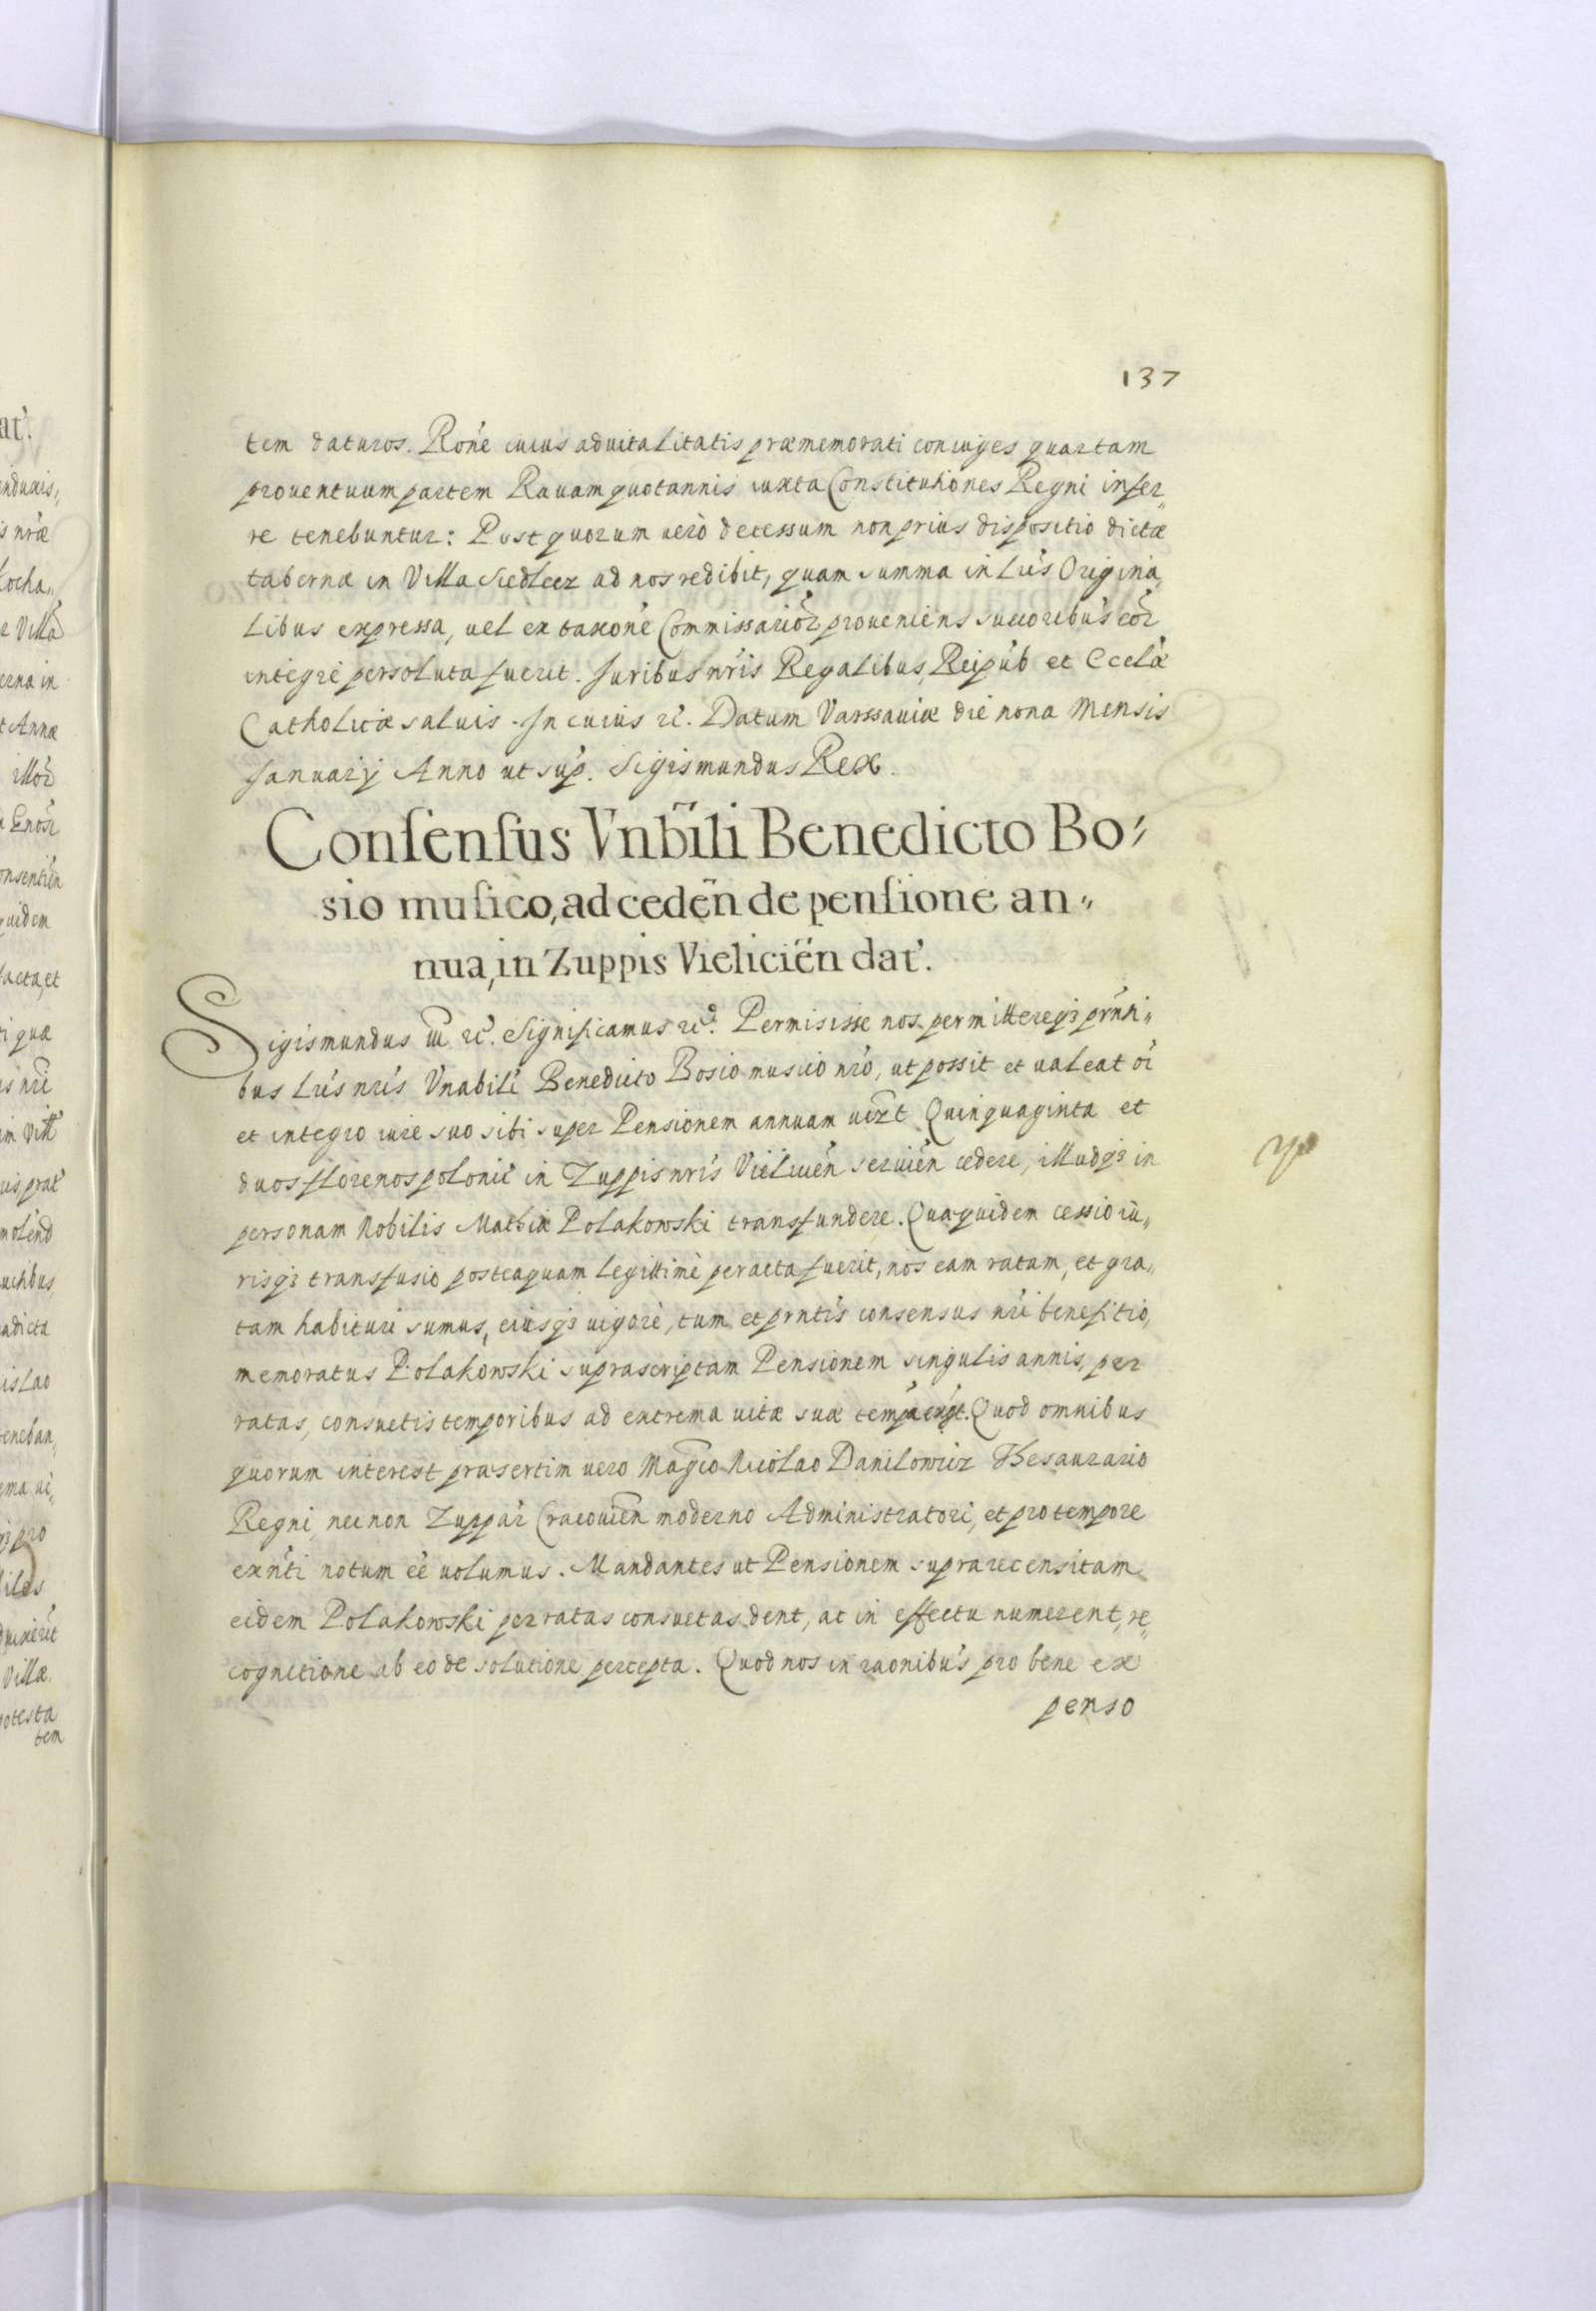 137
tem daturos. Rone̕ cuius aduitalitatis præmemorati coniuges quartam
prouentuum partem Rauam quotannis iuxta Constitutiones Regni infer„
re tenebuntur: Post quorum uerò decessum non prius dispositio dictæ
tabernæ in Villa Siedleez ad nos redibit, quam summa in Lr̕is Origina„
libus expressa, uel ex taxone̕ Commissarior̕ proueniens successoribu̕s eor̕
integrè persoluta fuerit. Juribus nr̕is Regalibus, Reipu̕b et Eccl̕æ
Catholicæ saluis. In cuius rc̕. Datum Varssauiæ die nona Mensis
Januarij Anno ut sup̕. Sigismundus Rex.
Conſenſus Vnb̃ili Benedicto Bo„
sio muſico, ad cedẽn de penſione an„
nua, in Zuppis Vieliciẽn dat̕.
Sigismundus iii rc̕. Significamus rc̕. Permisisse nos permittereqз prn̕ti„
bus Lr̕is nr̕is Vnabili̕ Benedicto Bosio musico nr̕o, ut possit et ualeat oi̕
et integro iure suo sibi super Pensionem annuam uizt Quinquaginta et
duos florenos polonic̕ in Zuppis nr̕is Vielicien̕ seruien̕ cedere, illudqз in
personam Nobilis Mathiæ Polakowski transfundere. Quæquidem cessio iu„
risqз transfusio posteaquam legittimè peracta fuerit, nos eam ratam, et gra„
tam habituri sumus, eiusqз uigorè, tum et prnti̕s consensus nr̕i benefitio,
memoratus Polakowski suprascriptam Pensionem singulis annis, per
ratas, consuetis temporibus ad extrema uitæ suæ temp̕a Quod omnibus
quorum interest præsertim uero Magco Nicolao Danilowicz Thesaurario
Regni, necnon Zuppar̕ Cracouien̕ moderno Administratori, et pro tempore
exn̕ti notum ee̕ uolumus. Mandantes ut Pensionem supra recensitam
eidem Polakowski per ratas consuetas dent, ac in effectu numerent, re„
cognitione ab eo de solutione percepta. Quod nos in raonibu̕s pro bene ex
penso